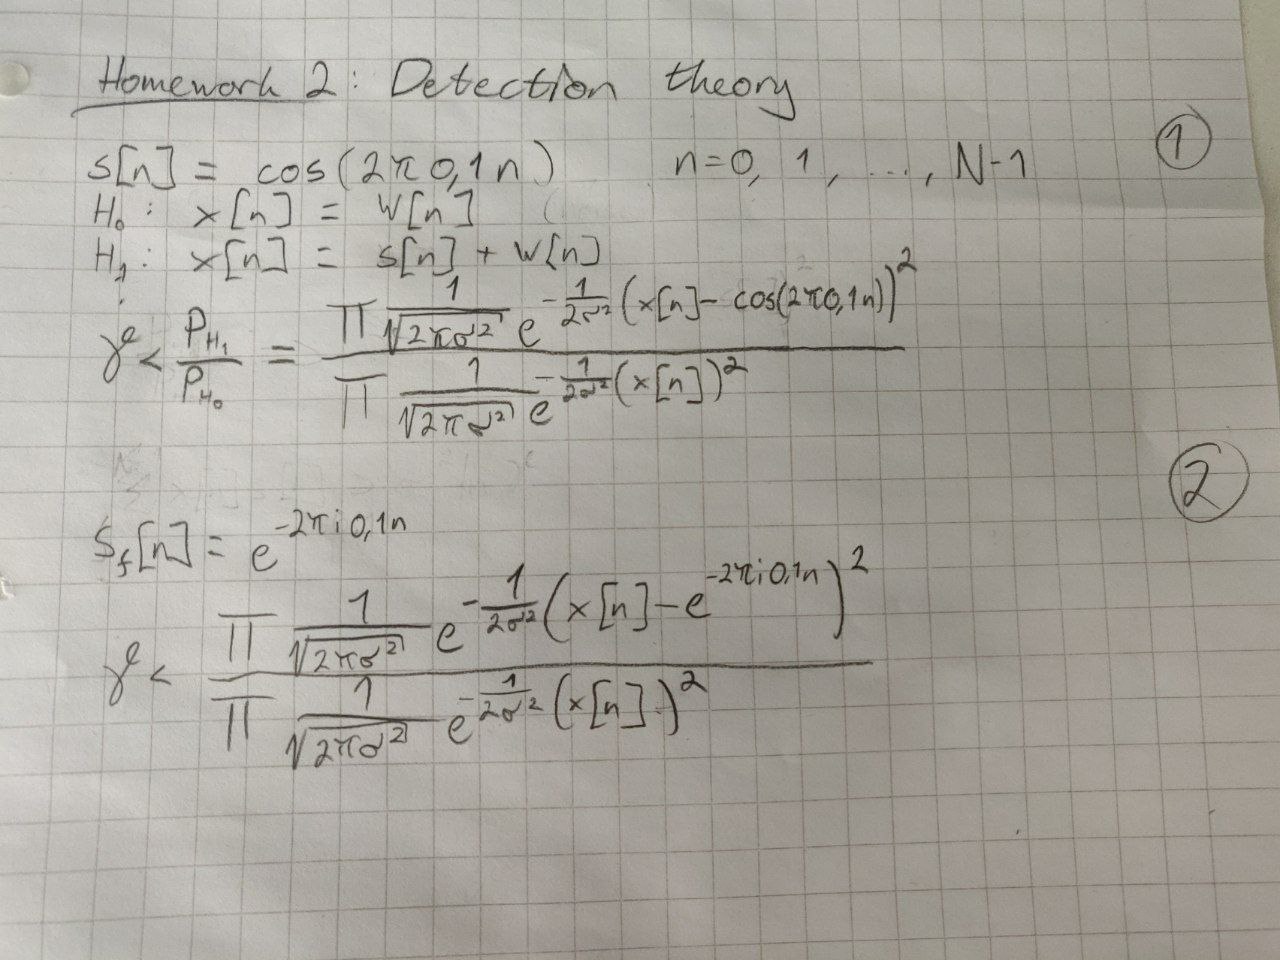 Homework 2: Detection theory
①
s[n] = cos(2π0,1n) n=0, 1, ..., N-1
H₀: x[n] = w[n]
H₁: x[n] = s[n] + w[n]
γ < P_H₁/P_H₀ = (∏ 1/√(2πσ²) e^(-1/(2σ²) (x[n] - cos(2π0,1n))²)) / (∏ 1/√(2πσ²) e^(-1/(2σ²) (x[n])²))
②
S_f[n] = e^(-2πi0,1n)
γ < (∏ 1/√(2πσ²) e^(-1/(2σ²) (x[n] - e^(-2πi0,1n))²)) / (∏ 1/√(2πσ²) e^(-1/(2σ²) (x[n])²))